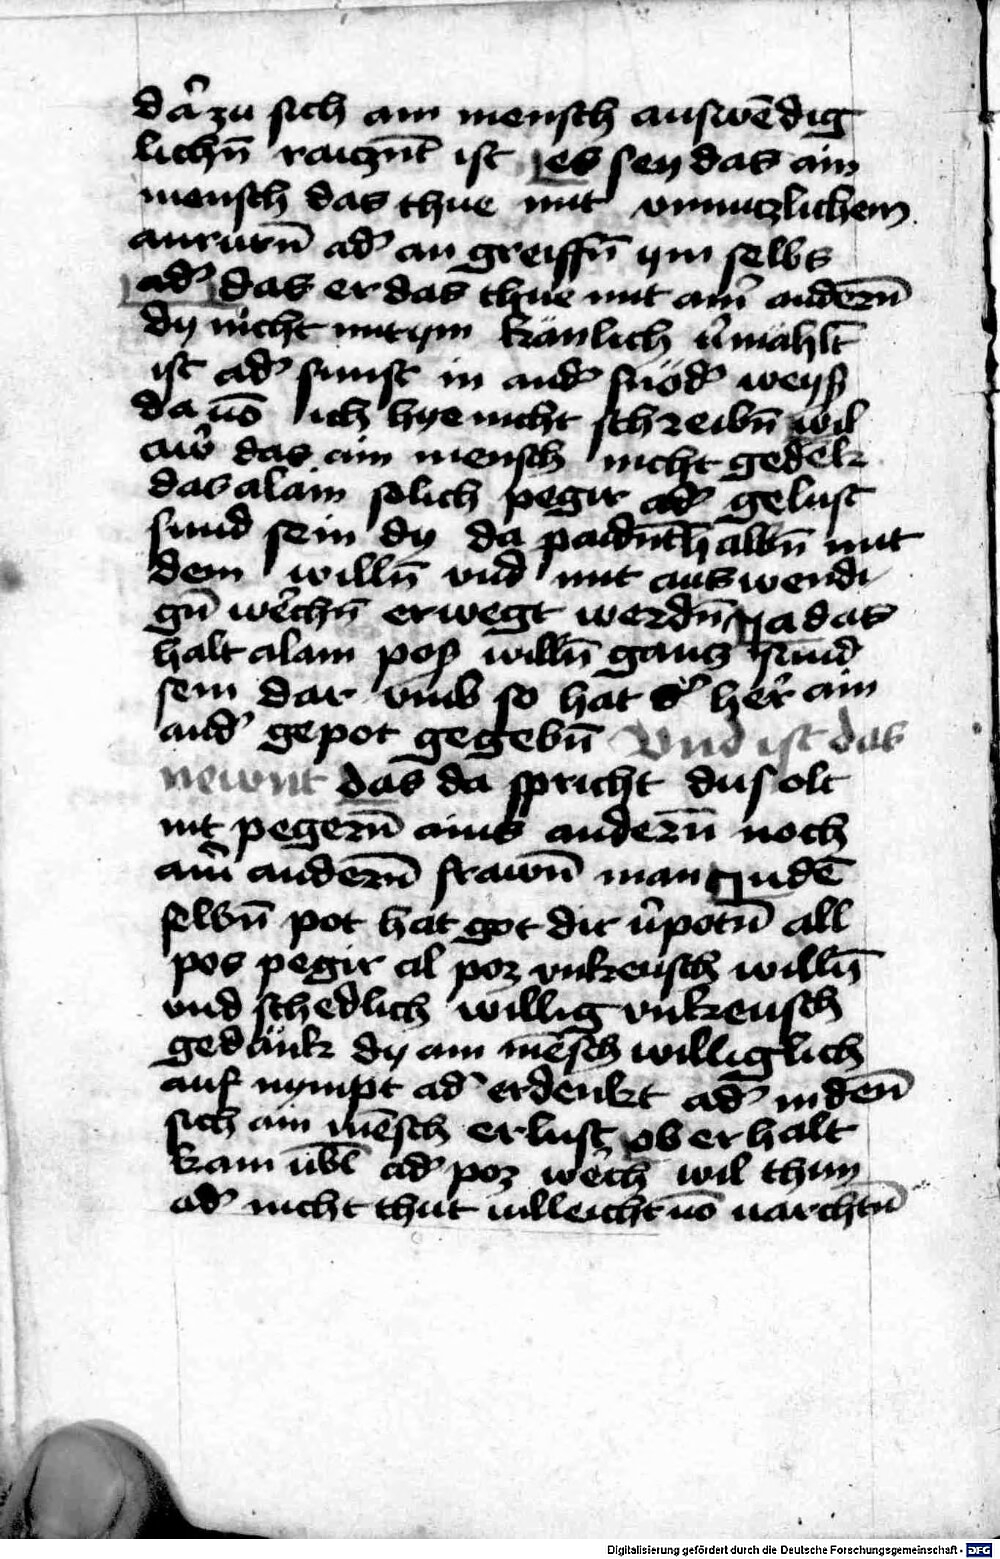 dar zu sich ain mensch auswēdig
lichn̄ raiczn̄t ist es sey das ain
mensch das thue mit vnnuczlichem
anrurn̄ ad' an greiffn̄ ym selbs
ad' das er das thue mit aim andern̄
dy nicht mit ym känlich v̂mähl̄t
ist ad' sunst in and' snöd' weyß
da uō ich hye nicht schreibn̄ wil
auf das ain mensch nicht gedek
das alain solich pegir ad' gelust
sund sein dy da paidn̄thalbn̄ mit
dem willn̄ vnd mit auswendi
gn̄ werchn̄ erwegt werdn̄ ya das
halt alain poß willn̄ gancz sund
sein dar vmb so hat d' her ain
and' gepot gegebn̄ Vnd ist das
newnt das da spricht du solt
nit pegern̄ ains andern̄ noch
aim andern̄ frawn̄ man Jn dē
selbn̄ pot hat got dir v̂potn̄ all
pos pegir al poz vnkeusch willn̄
vnd schedlich willig vnkeusch
gedänk dy ain mēsch williglich
auf nympt ad' erdenkt ad' in den̄
sich ain mēsch erlust ob er halt
kain übl ad' poz wech wil thun
ad' nicht thut villeicht uō uarchtn̄
Digitalisierung gefördert durch die Deutsche Forschungsgemeinschaft - DFG